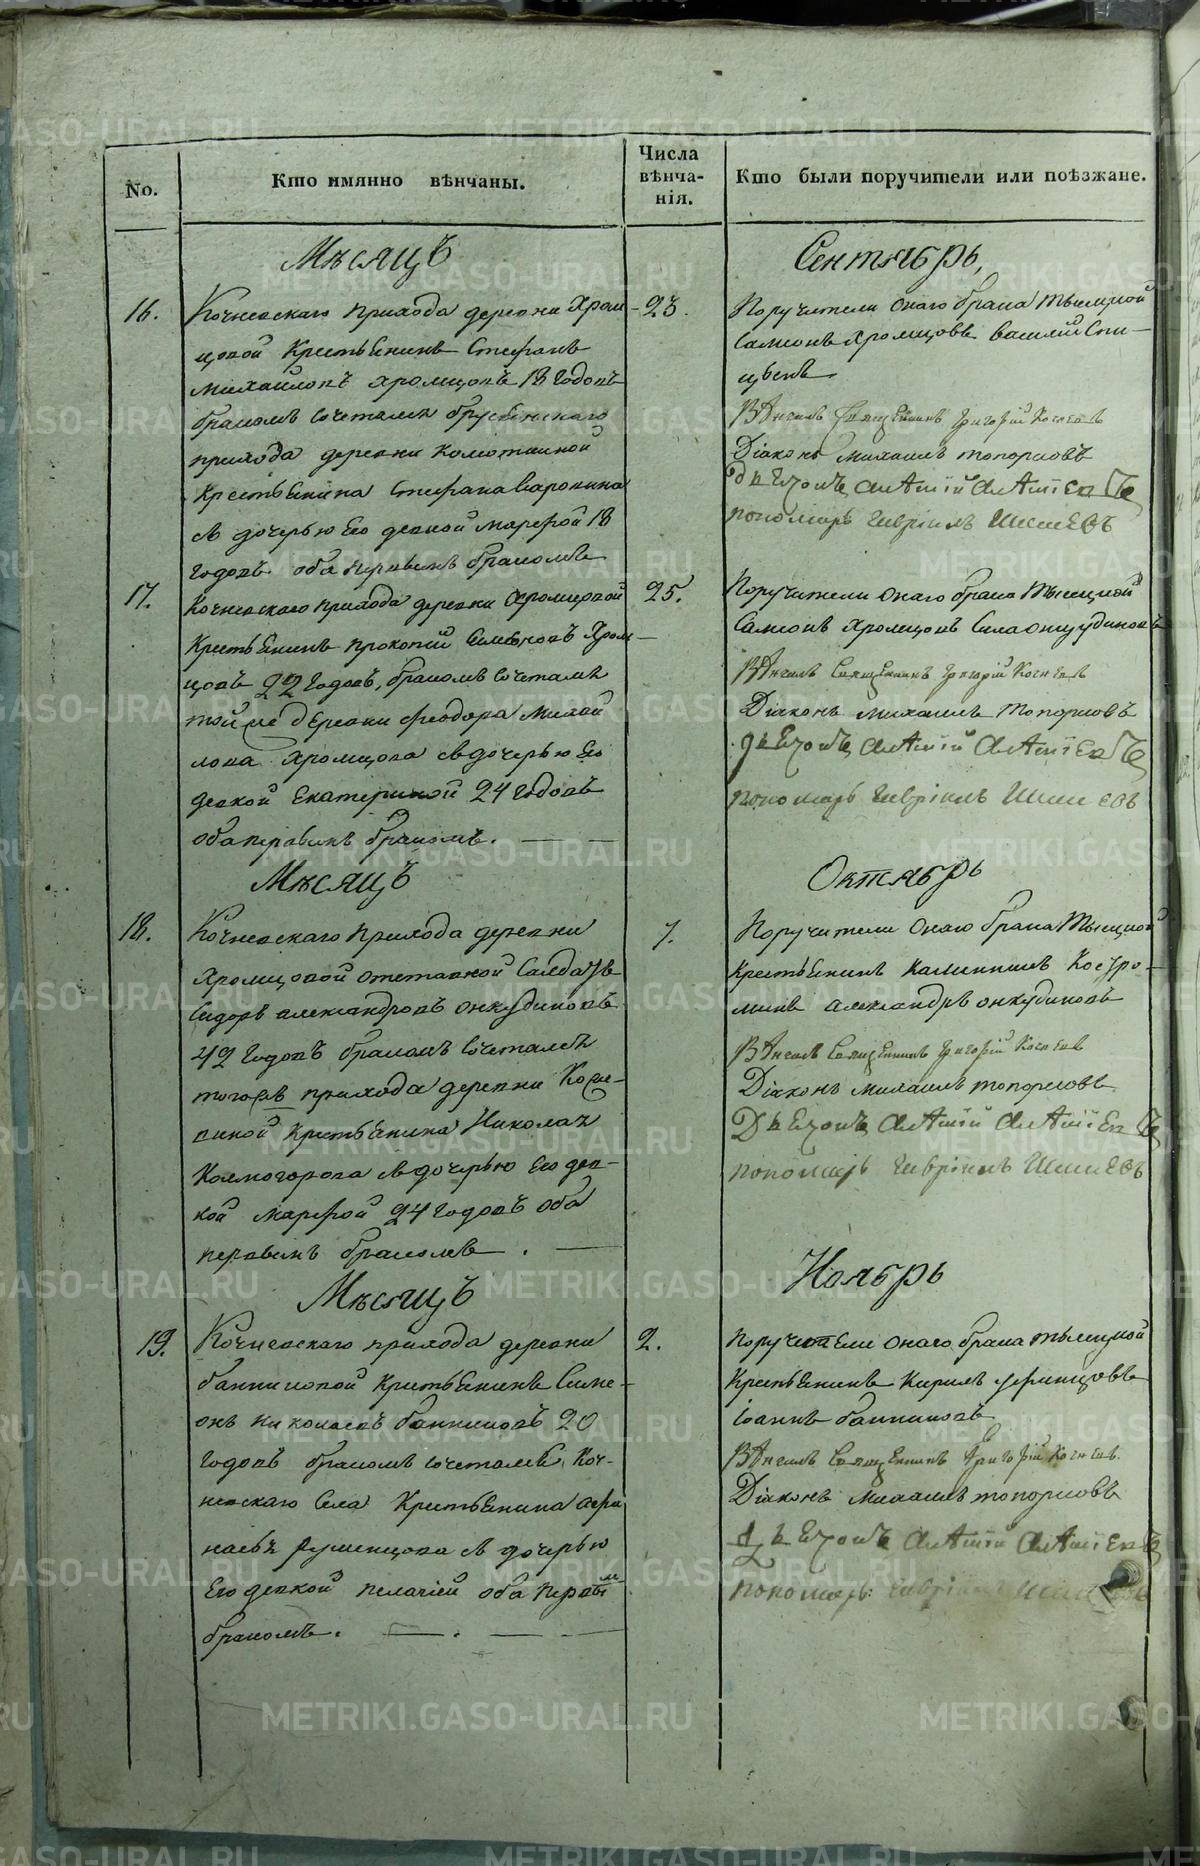 No.
Кто имянно вѣнчаны.
Числа
вѣнча-
нія.
Кто были поручители или поѣзжане.
Мѣсяцъ
Сентябрь,
16.
Кочневскаго прихода деревни Хром-
цовой Крестьянинъ Стефанъ
Михайловъ Хромцовъ 18 годовъ
бракомъ сочетался Брусянскаго
прихода деревни Колюткиной
Крестьянина Стефана
съ дочерью Его девкой Марфой 18
годовъ оба первымъ бракомъ
23.
Поручители онаго брака тысяцкой
Самсонъ Хромцовъ Василий Спи-
цынъ
Вѣнчалъ Священникъ Григорій
Діаконъ Михаилъ Топорковъ
Дьячокъ
пономарь Гавріилъ
17.
Кочневскаго прихода деревни Хромцовой
Крестьянинъ Прокопій Симеоновъ Хром-
цовъ 22 годовъ, бракомъ сочетался
той же деревни Феодора Михай
лова Хромцова съ дочерью Его
девкой Екатериной 24 годовъ
оба первымъ бракомъ.
25.
Поручители онаго брака тысяцкой
Самсонъ Хромцовъ Сила Онкудиновъ
Вѣнчалъ Священникъ Григорій
Діаконъ Михаилъ Топорковъ
Дьячокъ
пономарь Гавріилъ
Мѣсяцъ
Октябрь
18.
Кочневскаго прихода деревни
Хромцовой отставной Салдатъ
Сидоръ Александровъ Онкудиновъ
42 годовъ бракомъ сочетался
тогожъ прихода деревни
Крестьянина Николая
Колмогорова съ дочерью Его дев-
кой Марфой 24 годовъ оба
первымъ бракомъ.
7.
Поручители онаго брака тысяцкой
Крестьянинъ Каллиникъ Костро-
минъ Александръ Онкудиновъ
Вѣнчалъ Священникъ Григорій
Діаконъ Михаилъ Топорковъ
Дьячокъ
пономарь Гавріилъ
Мѣсяцъ
Ноябрь
19.
Кочневскаго прихода деревни
Банниковой Крестьянинъ Симе-
онъ Николаевъ Банниковъ 20
годовъ бракомъ сочетался Коч-
невскаго Села Крестьянина Афа
насья Румянцова съ дочерью
Его девкой Пелагіей оба первы
мъ
бракомъ.
2.
Поручители онаго брака тысяцкой
Крестьянинъ Кирилъ
Іоаннъ Банниковъ
Вѣнчалъ Священникъ Григорій
Діаконъ Михаилъ Топорковъ
Дьячокъ
пономарь: Гавріилъ
METRIKI.GASO-URAL.RU